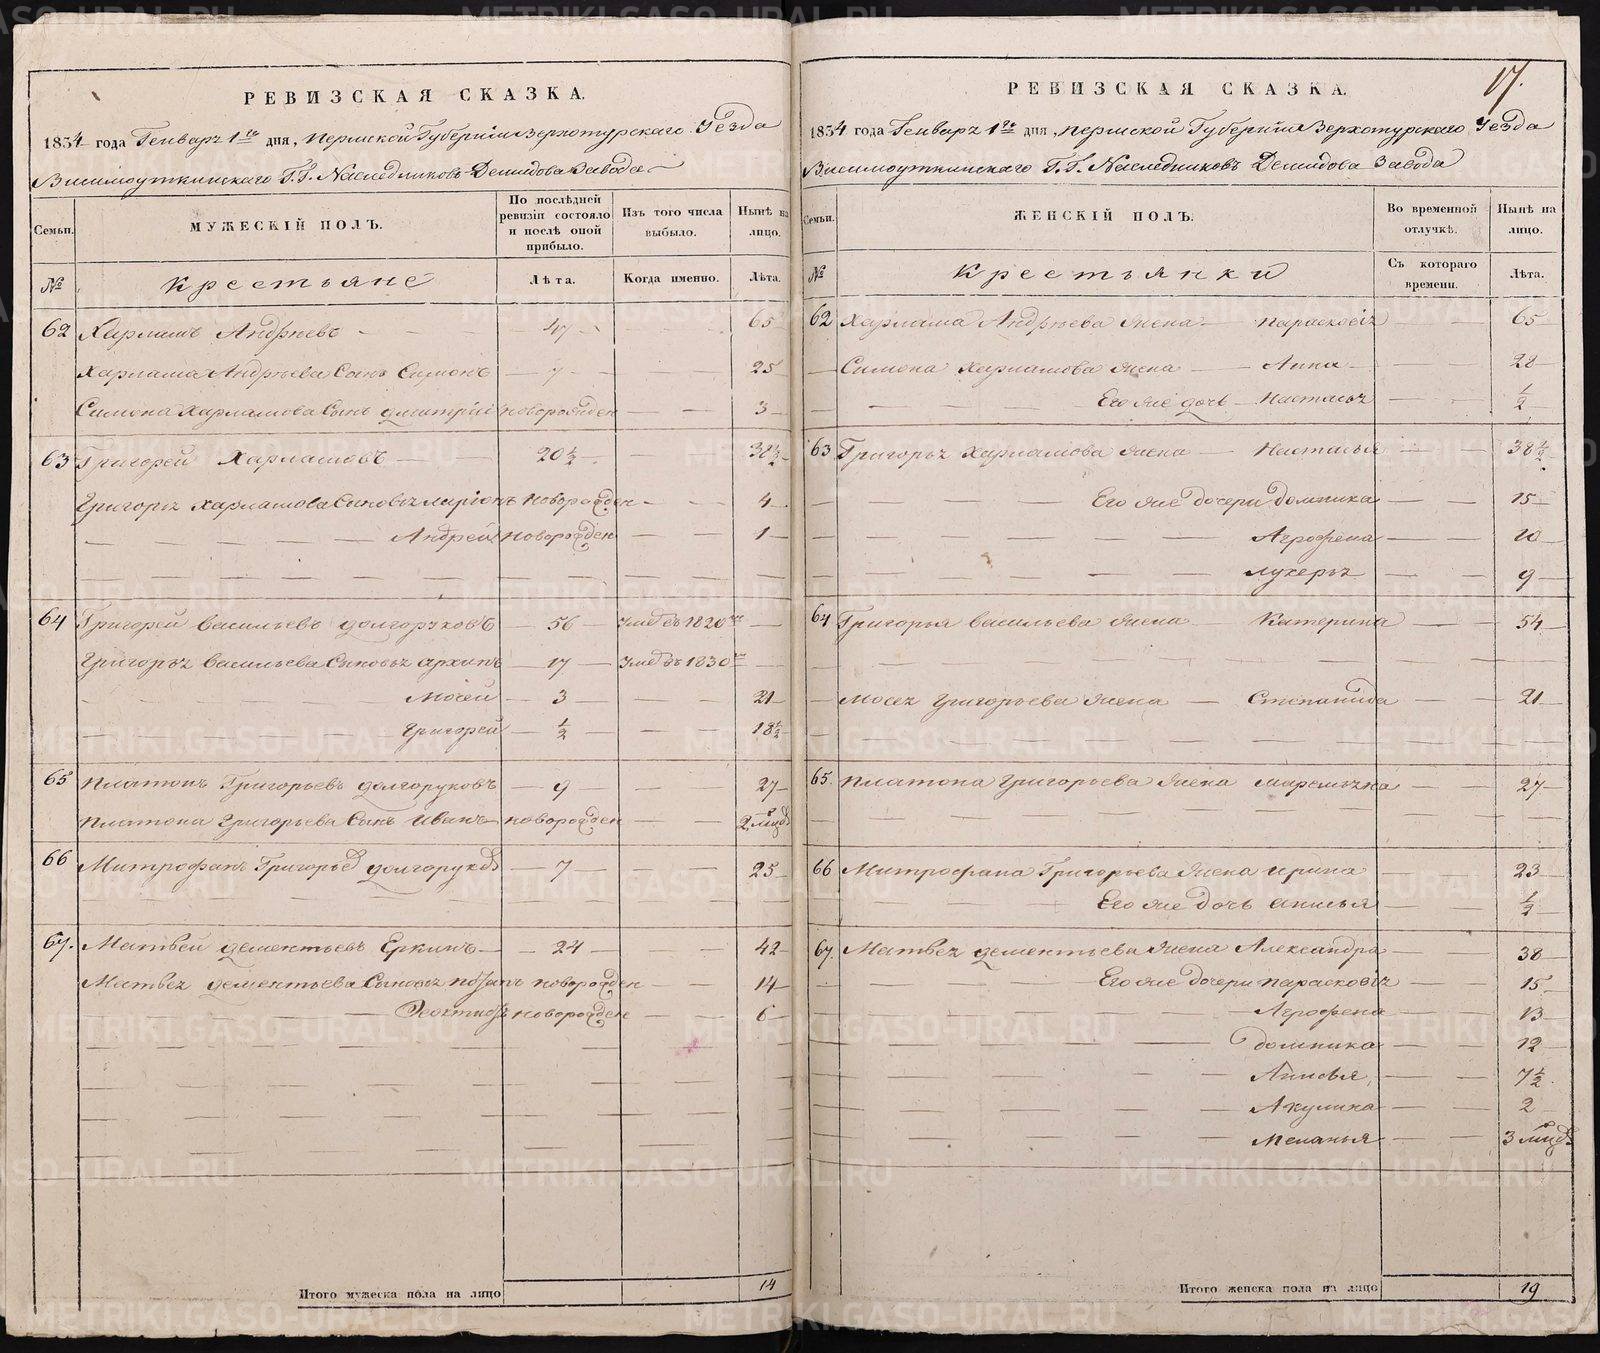 РЕВИЗСКАЯ СКАЗКА.
1834 года Генваря 1го дня, Пермской Губерніи Верхотурскаго Уезда
Висимоуткинскаго Г.Г. Наследниковъ Демидова Завода
Семьи.
МУЖЕСКІЙ ПОЛЪ.
По послѣдней ревизіи состояло и послѣ оной прибыло.
Изъ того числа выбыло.
Нынѣ на лицо.
№
Крестьяне
Лѣта.
Когда именно.
Лѣта.
62 Харламъ Андрѣевъ 47 65
Харлама Андрѣева Сынъ Симонъ 7 25
Симона Харламова Сынъ Дмитрій новорожден 3
63 Григорей Харламовъ 20½ 38½
Григорья Харламова Сыновья Ларіонъ новорожден 4
Андрей новорожден 1
64 Григорей Васильевъ Долгоруковъ 56 Умеръ въ 1820
Григорья Васильева Сыновья Архипъ 17 Умеръ въ 1830
Мосей 3 21
Григорей ½ 18½
65 Платонъ Григорьевъ Долгоруковъ 9 27
Платона Григорьева Сынъ Иванъ новорожден 2 мцов
66 Митрофанъ Григорьев Долгоруков 7 25
67. Матвей Дементьевъ Еркинъ 24 42
Матвея Дементьева Сыновья новорожден 14
новорожден 6
Итого мужеска пола на лицо 14
17.
РЕВИЗСКАЯ СКАЗКА.
1834 года Генваря 1го дня, Пермской Губерніи Верхотурскаго Уезда
Висимоуткинскаго Г.Г. Наследниковъ Демидова Завода
Семьи.
ЖЕНСКІЙ ПОЛЪ.
Во временной отлучкѣ.
Нынѣ на лицо.
№
Крестьянки
Съ котораго времени.
Лѣта.
62 Харлама Андрѣева жена Парасковія 65
Симона Харламова жена Анна 28
Его же дочь Настасья ½
63 Григорья Харламова жена Настасья 38½
Его же дочери Домника 15
Агрофена 10
Лукерья 9
64 Григорья Васильева жена Катерина 54
Мосея Григорьева жена Степанида 21
65. Платона Григорьева жена Маремьяна 27
66 Митрофана Григорьева жена Ирина 23
Его же дочь Анисья ½
67. Матвея Дементьева жена Александра 38
Его же дочери Парасковія 15
Агрофена 13
Домника 12
Анисья 7½
Акулина 2
Меланья 3 мцов
Итого женска пола на лицо 19
METRIKI.GASO-URAL.RU